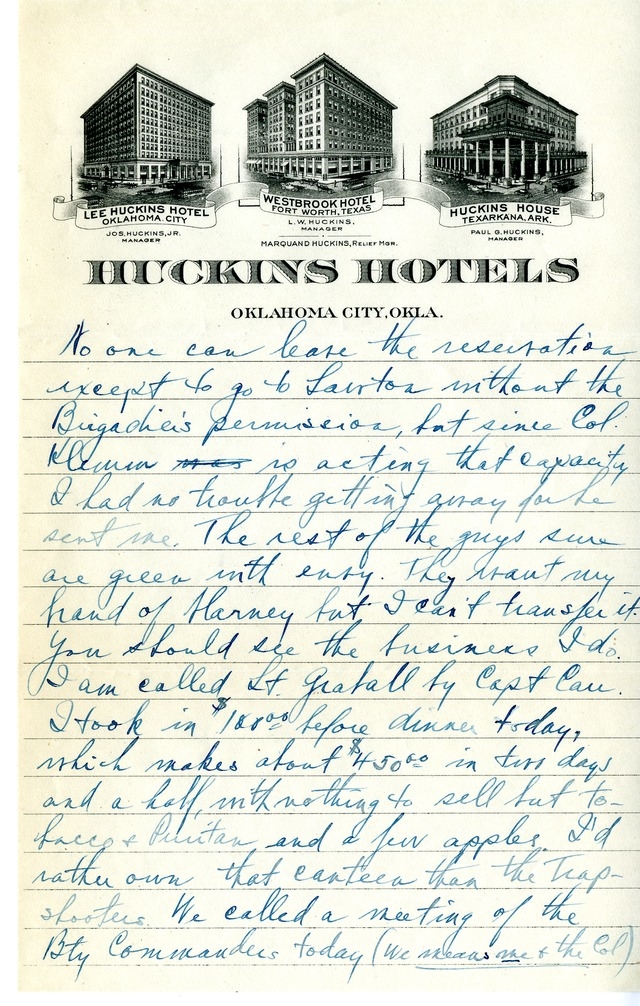 LEE HUCKINS HOTEL
OKLAHOMA CITY
JOS. HUCKINS, JR.
MANAGER
WESTBROOK HOTEL
FORT WORTH, TEXAS
L. W. HUCKINS,
MANAGER
MARQUAND HUCKINS, RELIEF MGR.
HUCKINS HOUSE
TEXARKANA, ARK.
PAUL G. HUCKINS,
MANAGER
HUCKINS HOTELS
OKLAHOMA CITY, OKLA.
No one can leave the reservation
except to go to Lawton without the
Brigadier's permission, but since Col.
Klemm was is acting that capacity
I had no trouble getting away for he
sent me. The rest of the guys sure
are green with envy. They want my
brand of blarney but I can't transfer it.
You should see the business I do.
I am called Lt. Graball by Capt Carr.
I took in $188 00 before dinner today,
which makes about $450 00 in two days
and a half, with nothing to sell but to-
bacco & Puritan and a few apples. I'd
rather own that canteen than the Trap-
shooters. We called a meeting of the
Bty Commanders today (We means me & the Col)